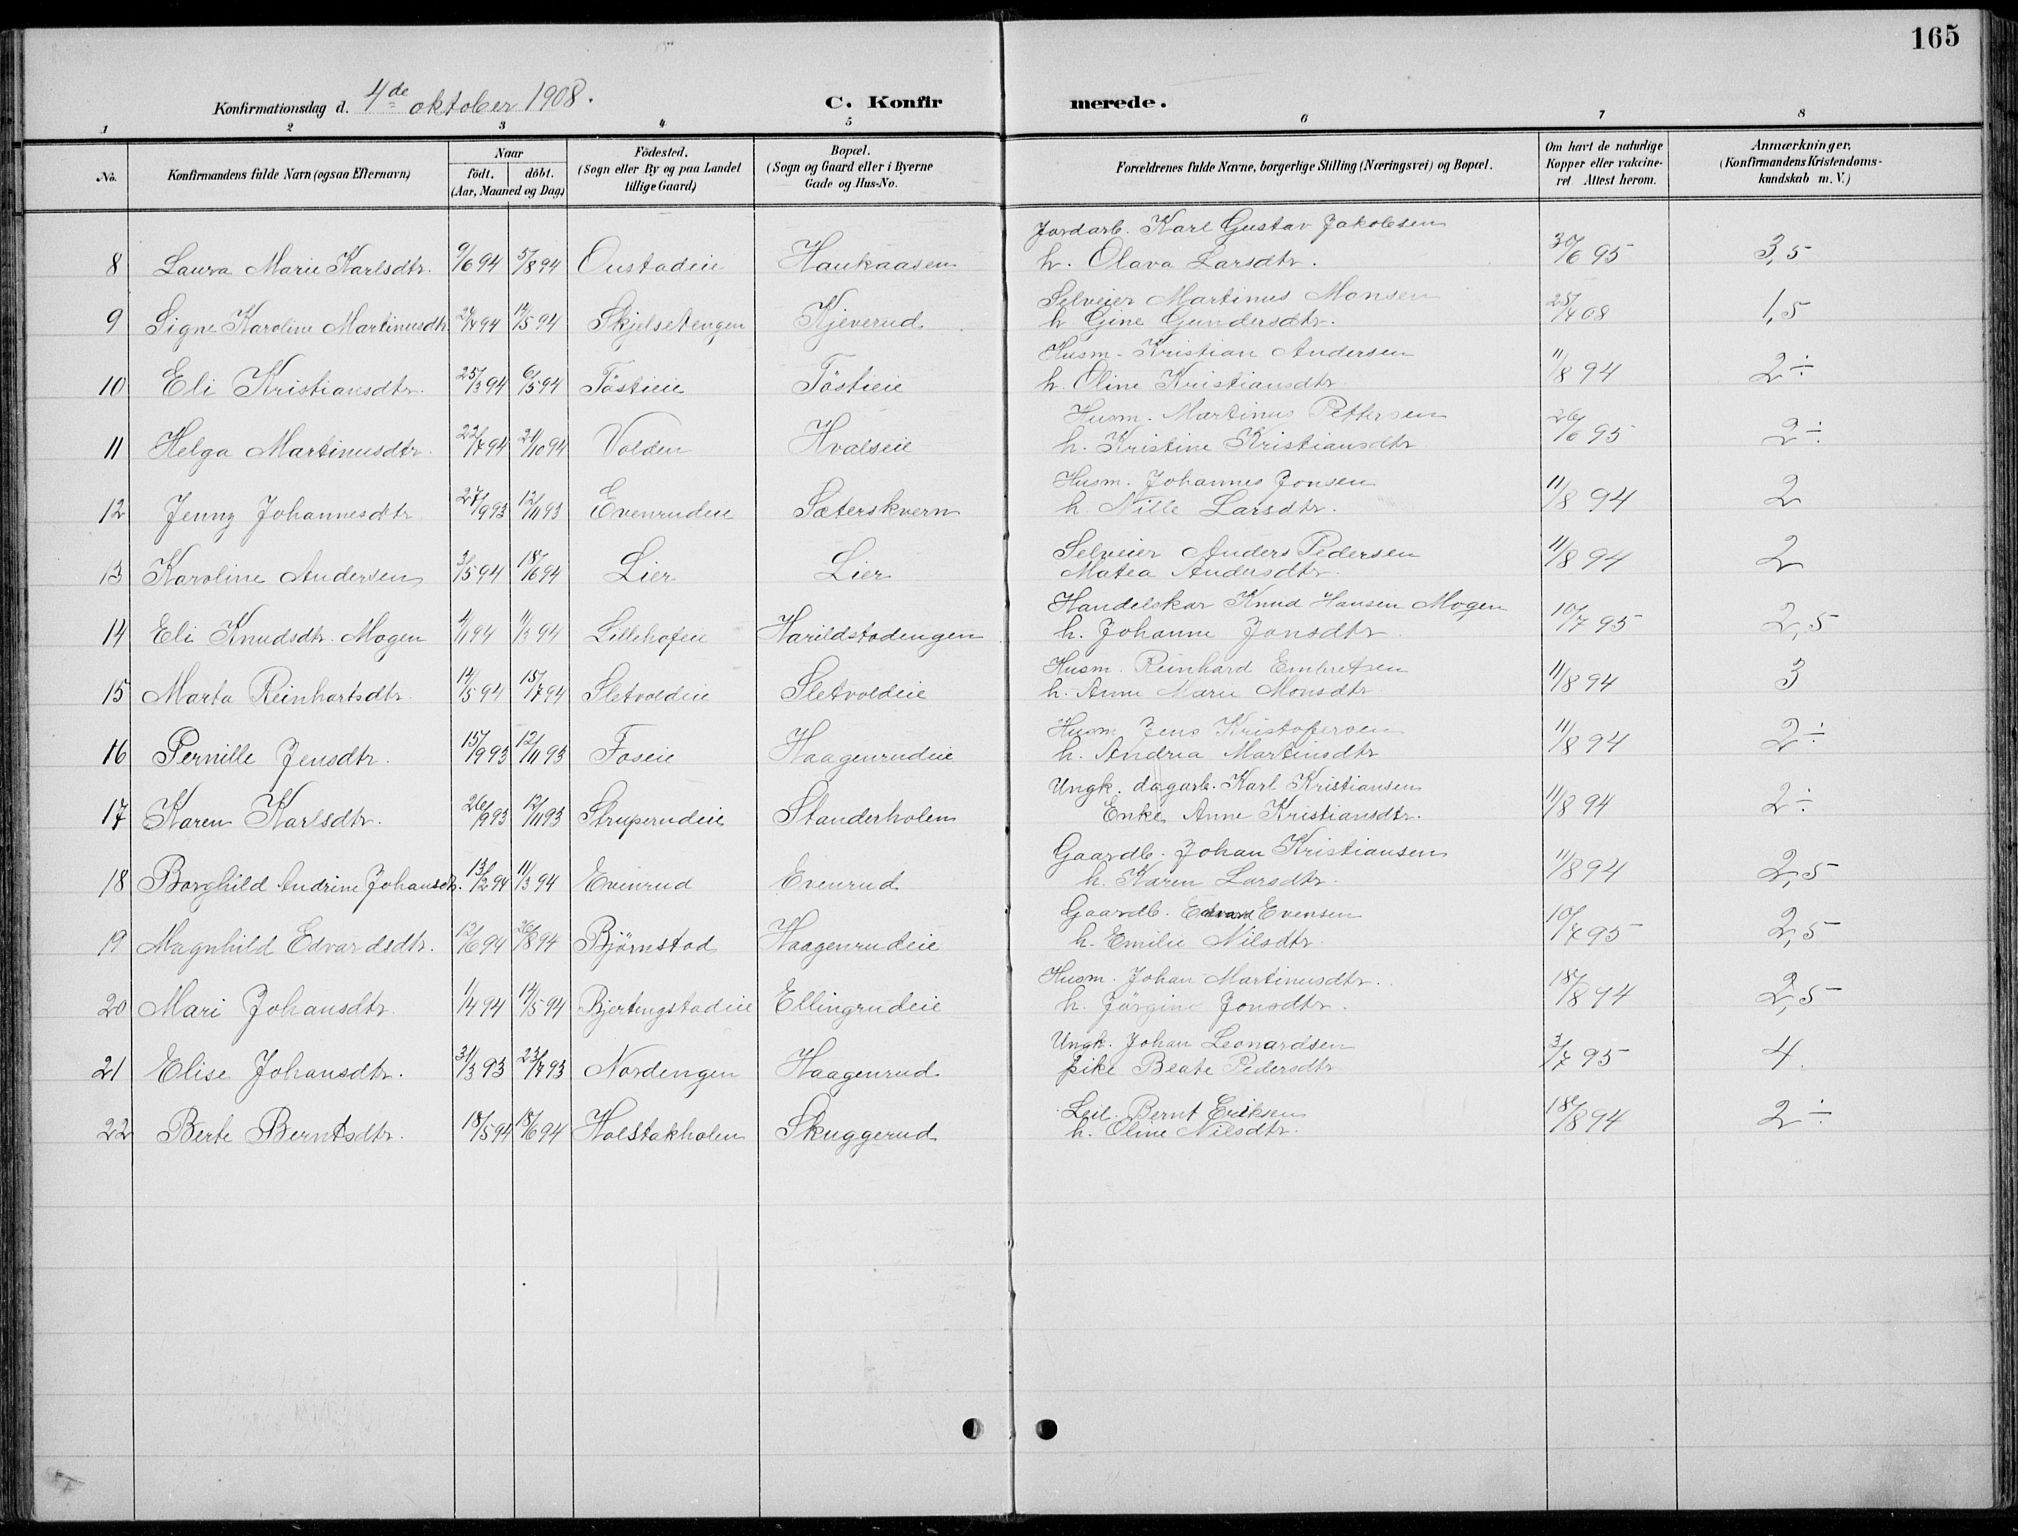 165
Konfirmationsdag d. 4de oktober 1908.
C. Konfirmerede.
1 2 3 4 5 6 7 8
No. Konfirmandens fulde Navn (ogsaa Efternavn) Naar födt. döbt. (Aar, Maaned og Dag) Födested. (Sogn eller By og paa Landet tillige Gaard) Bopæl. (Sogn og Gaard eller i Byerne Gade og Hus-No. Forældrenes fulde Navne, borgerlige Stilling (Næringsvei) og Bopæl. Om havt de naturlige Kopper eller vakcineret Attest herom. Anmærkninger. (Konfirmandens Kristendomskundskab m. V.)
Jordarb. Karl Gustav Jakobsen
8 Laura Marie Karlsdtr. 9/6 94 5/8 94 Onstadeie Haukaasen h. Olava Larsdtr. 30/6 95 3,5
Selveier Martinus Monsen
9 Signe Karoline Martinusdtr 24/4 94 14/5 94 Skjelsetengen Kjeverud h Gine Gundersdtr. 25/4 08 1,5
Husm. Kristian Andersen
10 Eli Kristiansdtr. 25/3 94 6/5 94 Töstieie Töstieie h. Oline Kristiansdtr. 11/8 94 2÷
Husm. Martinus Pettersen
11 Helga Martinusdtr. 22/7 94 21/10 94 Volden Hvalseie h. Kristine Kristiansdtr 26/6 95 2÷
Husm. Johannes Jonsen
12 Jenny Johannesdtr 27/9 93 12/11 93 Evenrudeie Sæterskvern h. Nille Larsdtr. 11/8 94 2
Selveier Anders Pedersen
13 Karoline Andersen 3/5 94 18/6 94 Lier Lier Matea Andersdtr. 11/8 94 2
Handelskar Knud Hansen Mogen
14 Eli Knudsdtr. Mogen 4/1 94 11/3 94 Lillehofeie Harildstadengen h. Johanne Jonsdtr 10/7 95 2,5
Husm. Reinhard Embretsen
15 Marta Reinhartsdtr. 14/5 94 15/7 94 Sletvoldeie Sletvoldeie h. Anne Marie Monsdtr 11/8 94 3
Husm Jens Kristofersen
16 Pernille Jensdtr. 15/9 93 12/11 93 Foseie Haagenrudeie h. Andrea Martinsdtr 11/8 94 2÷
Ungk. dagarb. Karl Kristiansen
17 Karen Karlsdtr. 26/9 93 12/11 93 Struperudeie Standerholen Enke Anne Kristiansdtr. 11/8 94 2÷
Gaardb. Johan Kristiansen
18 Borghild Andrine Johansdtr. 13/2 94 11/3 94 Evenrud Evenrud h. Karen Larsdtr. 11/8 94 2,5
Gaardb. Edvard Evensen
19 Magnhild Edvardsdtr. 12/6 94 26/8 94 Bjørnstad Haagenrudeie h. Emilie Nilsdtr. 10/7 95 2,5
Husm. Johan Martinusdtr.
20 Mari Johansdtr. 1/4 94 14/5 94 Bjertingstadeie Ellingrudeie h. Jörgine Jonsdtr. 18/8 94 2,5
Ungk. Johan Leonardsen
21 Elise Johansdtr. 31/3 93 23/7 93 Nordengen Haagenrud pike Beate Pedersdtr 3/7 95 4.
Leil. Bernt Eriksen
22 Berte Berntsdtr. 18/5 94 18/6 94 Holstakholen Skuggerud h. Oline Nilsdtr. 18/8 94 2÷